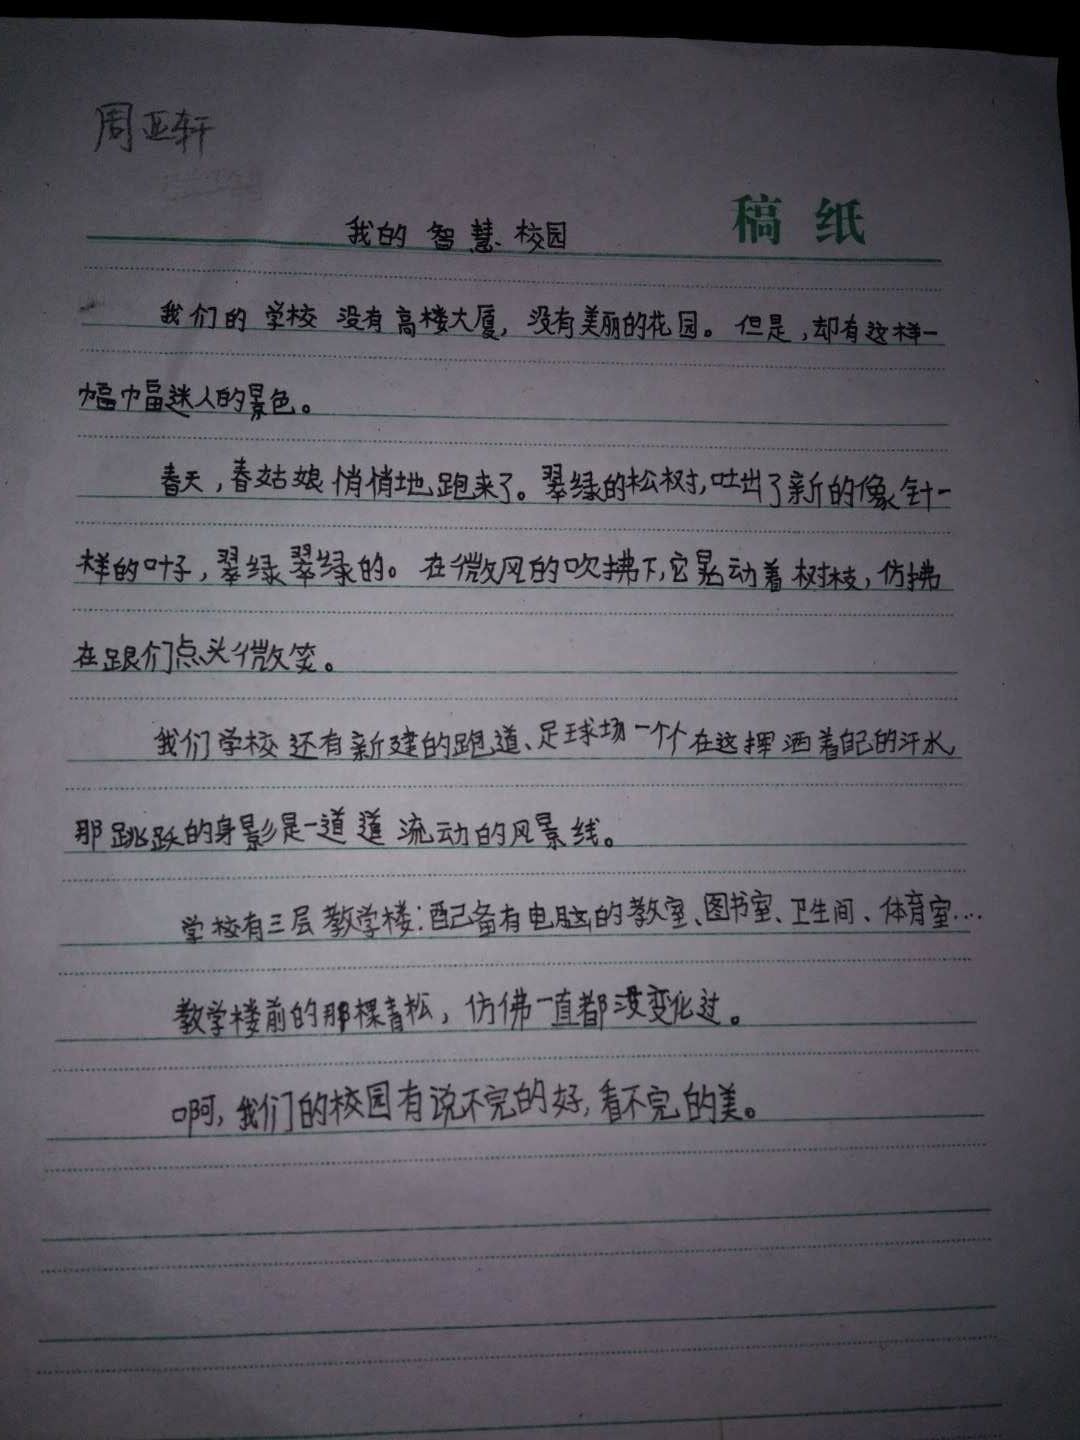 周亚轩
稿纸
我的智慧校园
我们的学校没有高楼大厦，没有美丽的花园。但是，却有这样一
幅幅迷人的景色。
春天，春姑娘悄悄地跑来了。翠绿的松树，吐出了新的像针一
样的叶子，翠绿翠绿的。在微风的吹拂下，它晃动着树枝，仿拂
在跟们点头微笑。
我们学校还有新建的跑道、足球场一个个在这挥洒着自己的汗水，
那跳跃的身影是一道道流动的风景线。
学校有三层教学楼：配备有电脑的教室、图书室、卫生间、体育室....
教学楼前的那棵青松，仿佛一直都没变化过。
啊，我们的校园有说不完的好，看不完的美。